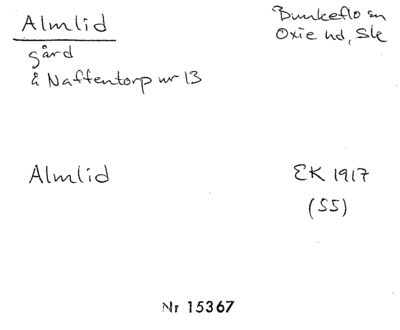 Almlid
Bunkeflo sn
Oxie hd, Sk
gård
å Naffentorp nr 13
Almlid
EK 1917
(55)
Nr 15367